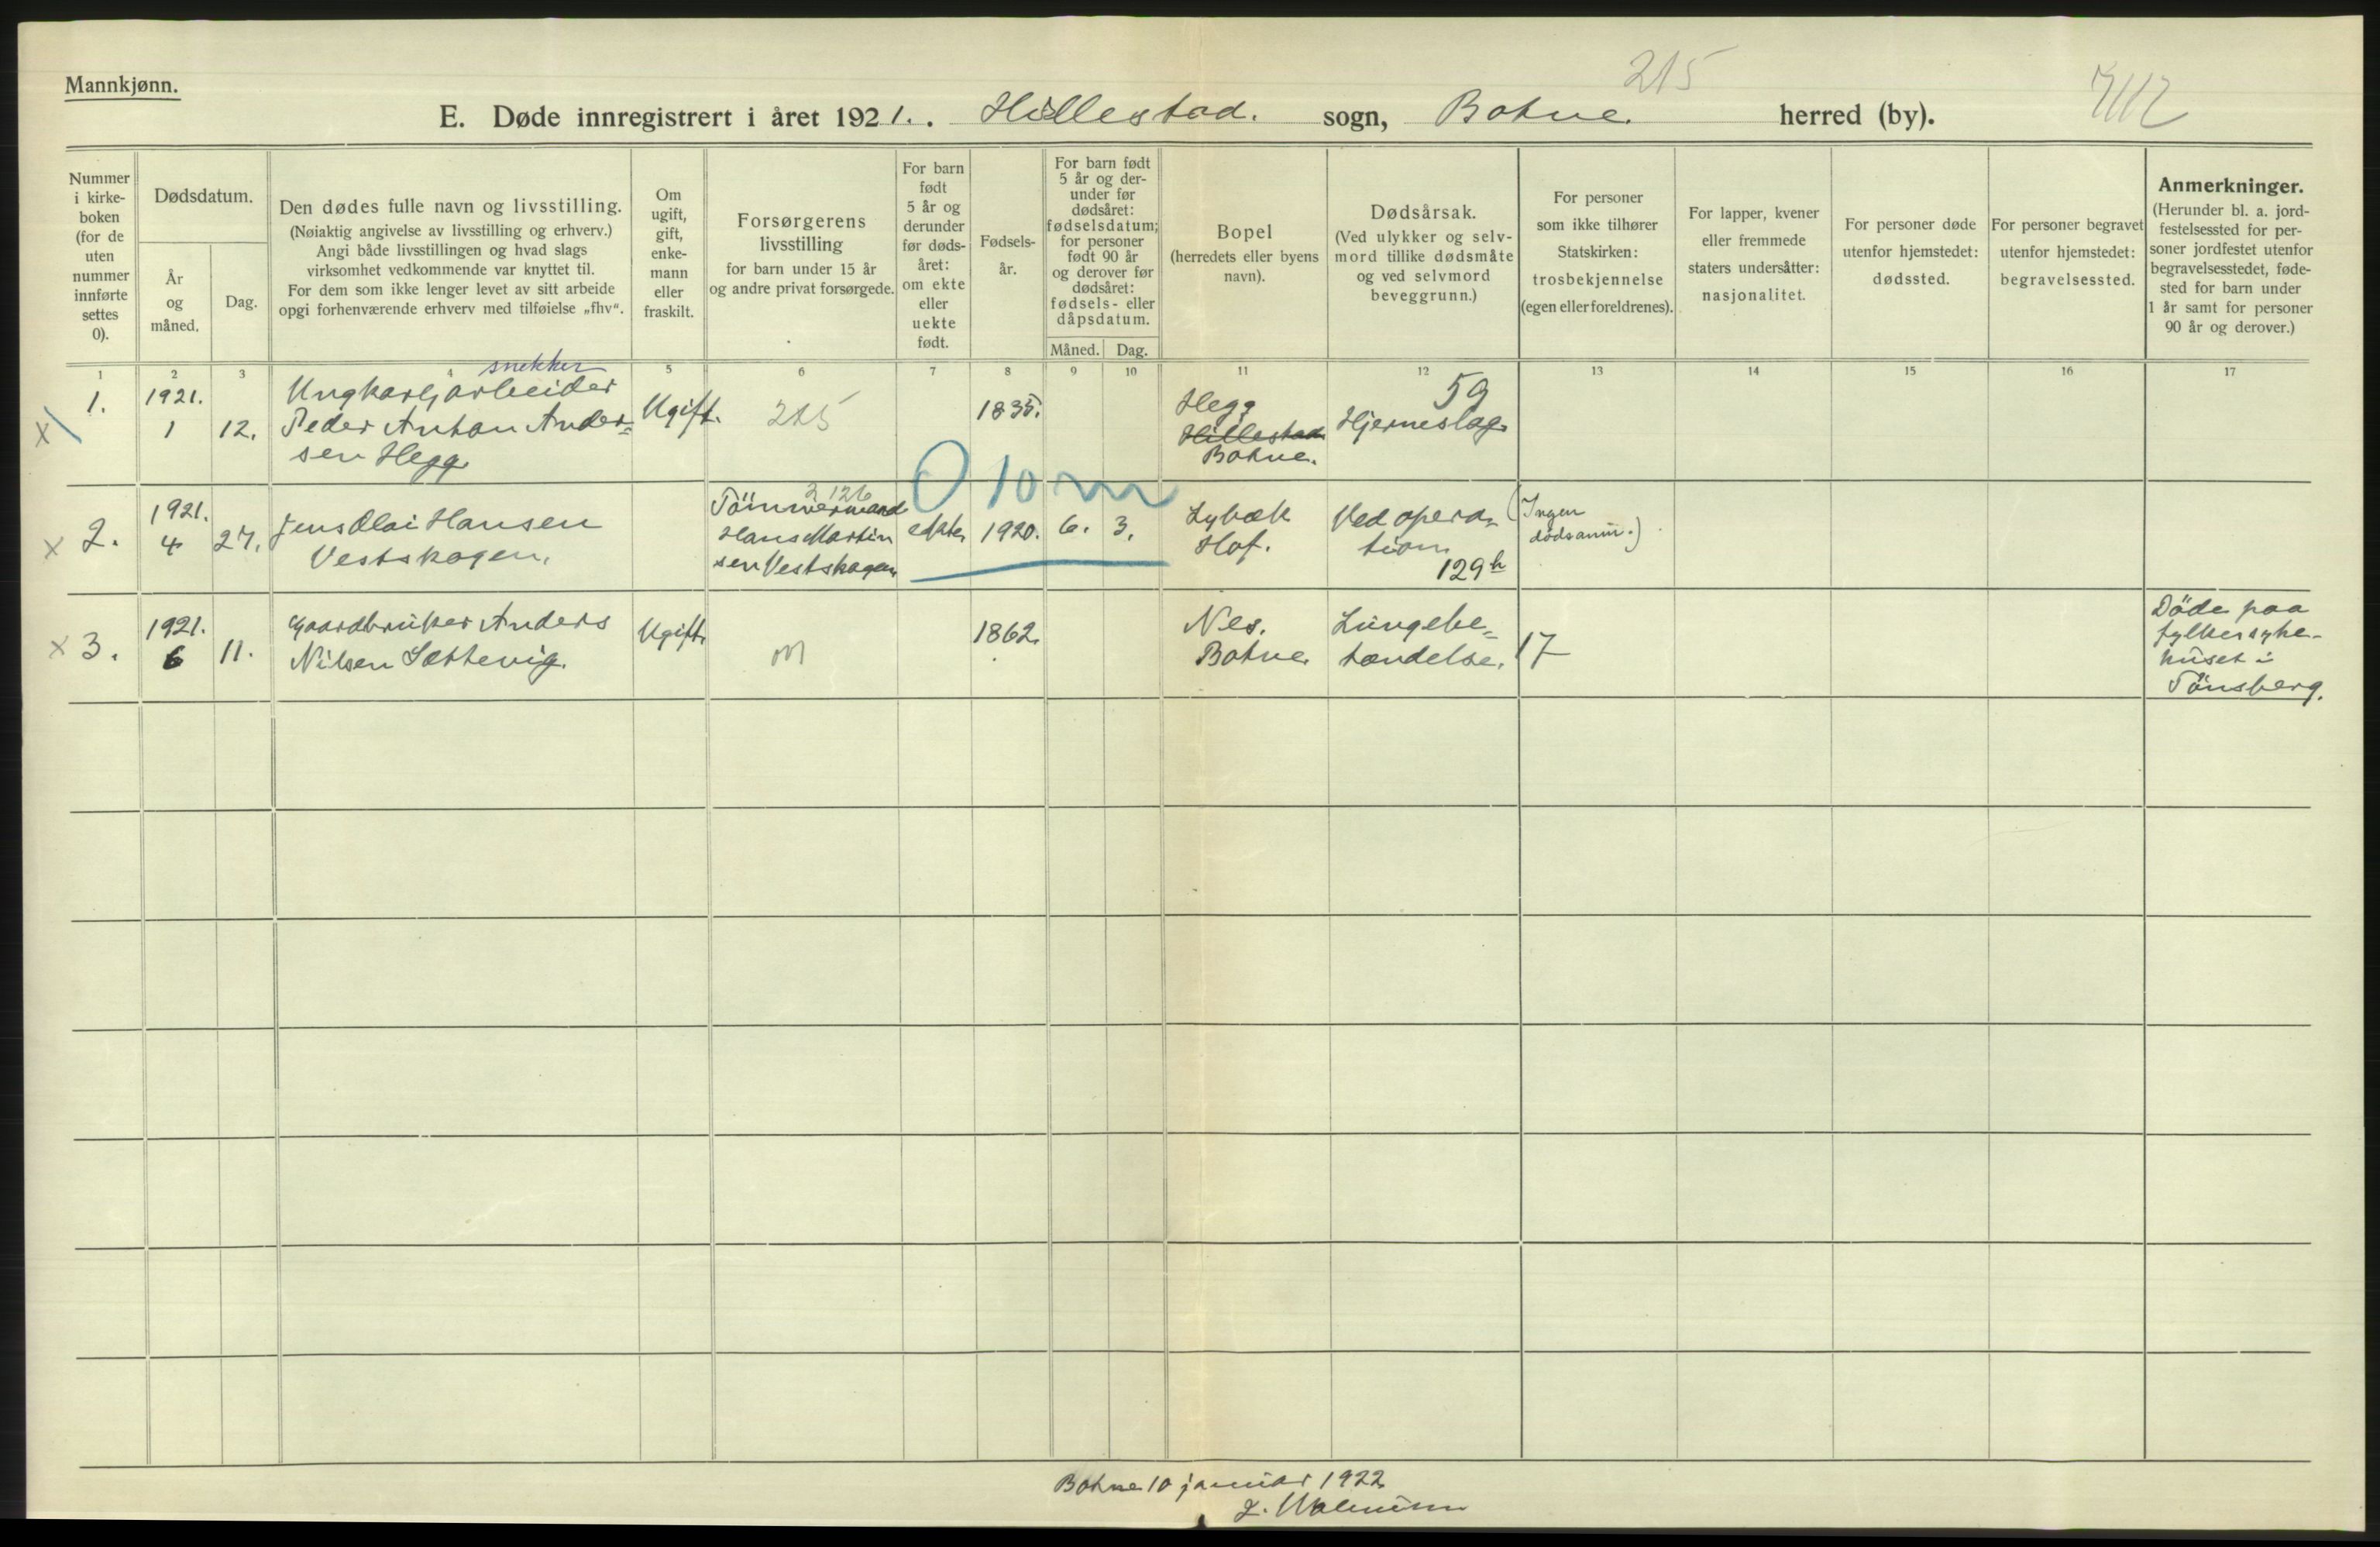 Mannkjønn.
215
7112
E. Døde innregistrert i året 1921. Hillestad. sogn, Botne. herred (by).
Nummer
i kirke-
boken
(for de
uten
nummer
innførte
settes
0).
Dødsdatum.
År
og
måned.
Dag.
Den dødes fulle navn og livsstilling.
(Nøiaktig angivelse av livsstilling og erhverv.)
Angi både livsstillingen og hvad slags
virksomhet vedkommende var knyttet til.
For dem som ikke lenger levet av sitt arbeide
opgi forhenværende erhverv med tilføielse „fhv“.
Om
ugift,
gift,
enke-
mann
eller
fraskilt.
Forsørgerens
livsstilling
for barn under 15 år
og andre privat forsørgede.
For barn
født
5 år og
derunder
før døds-
året:
om ekte
eller
uekte
født.
Fødsels-
år.
For barn født
5 år og der-
under før
dødsåret:
fødselsdatum;
for personer
født 90 år
og derover før
dødsåret:
fødsels- eller
dåpsdatum.
Måned.
Dag.
Bopel
(herredets eller byens
navn).
Dødsårsak.
(Ved ulykker og selv-
mord tillike dødsmåte
og ved selvmord
beveggrunn.)
For personer
som ikke tilhører
Statskirken:
trosbekjennelse
(egen eller foreldrenes).
For lapper, kvener
eller fremmede
staters undersåtter:
nasjonalitet.
For personer døde
utenfor hjemstedet:
dødssted.
For personer begravet
utenfor hjemstedet:
begravelsessted.
Anmerkninger.
(Herunder bl. a. jord-
festelsessted for per-
soner jordfestet utenfor
begravelsesstedet, føde-
sted for barn under
1 år samt for personer
90 år og derover.)
1 2 3 4 5 6 7 8 9 10 11 12 13 14 15 16 17
x
1.
1921.
1
12.
snekker
Ungkarl, arbeider
Peder Anton Ander=
sen Hegg.
Ugift.
215
1835.
Hegg
Hillestad
Botne.
59
Hjerneslag.
0 10 m
x 2.
1921.
4
27.
Jens Olai Hansen
Vestskogen.
2 126
Tömmermand
Hans Martin
sen Vestskogen
ekte
1920.
6.
3.
Lybæk
Hof.
Ved opera=
tion
129 h
(Ingen
dødsanm.)
x 3.
1921.
6
11.
Gaardbruker Anders
Nilsen Sættevig.
Ugift.
m
1862.
Nes.
Botne.
Lungebe=
tændelse.
17
Döde paa
fylkessyke-
huset i
Tönsberg.
Botne 10 januar 1922